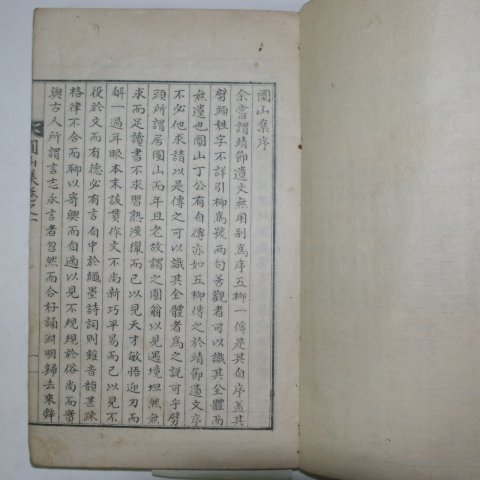 圓山集序
余嘗謂靖節遺文無用別爲序五柳一傳是其自序蓋其
劈頭姓字不詳引柳爲號兩句善觀者可以識其全體而
無遺也圓山丁公有自傳亦如五柳傳之於靖節遺文序
不必他求請以是傳之可以識其全體者爲之說可乎劈
頭所謂居圓山而年且老故謂之圓翁以見遇境坦然無
求而足讀書不求習熟漫攟而已以見天才敏悟迎刃而
解一過耳眼本末該貫作文不尚新巧平易而已以見不
役於文而有德必有言自中於繩墨詩詞則鍾音韻甚踈
格律不合而聊以寄興而自適以見不規規於俗尚而實
與古人所謂言志永言者忽然而合好誦淵明歸去來辭
圓山集卷之一